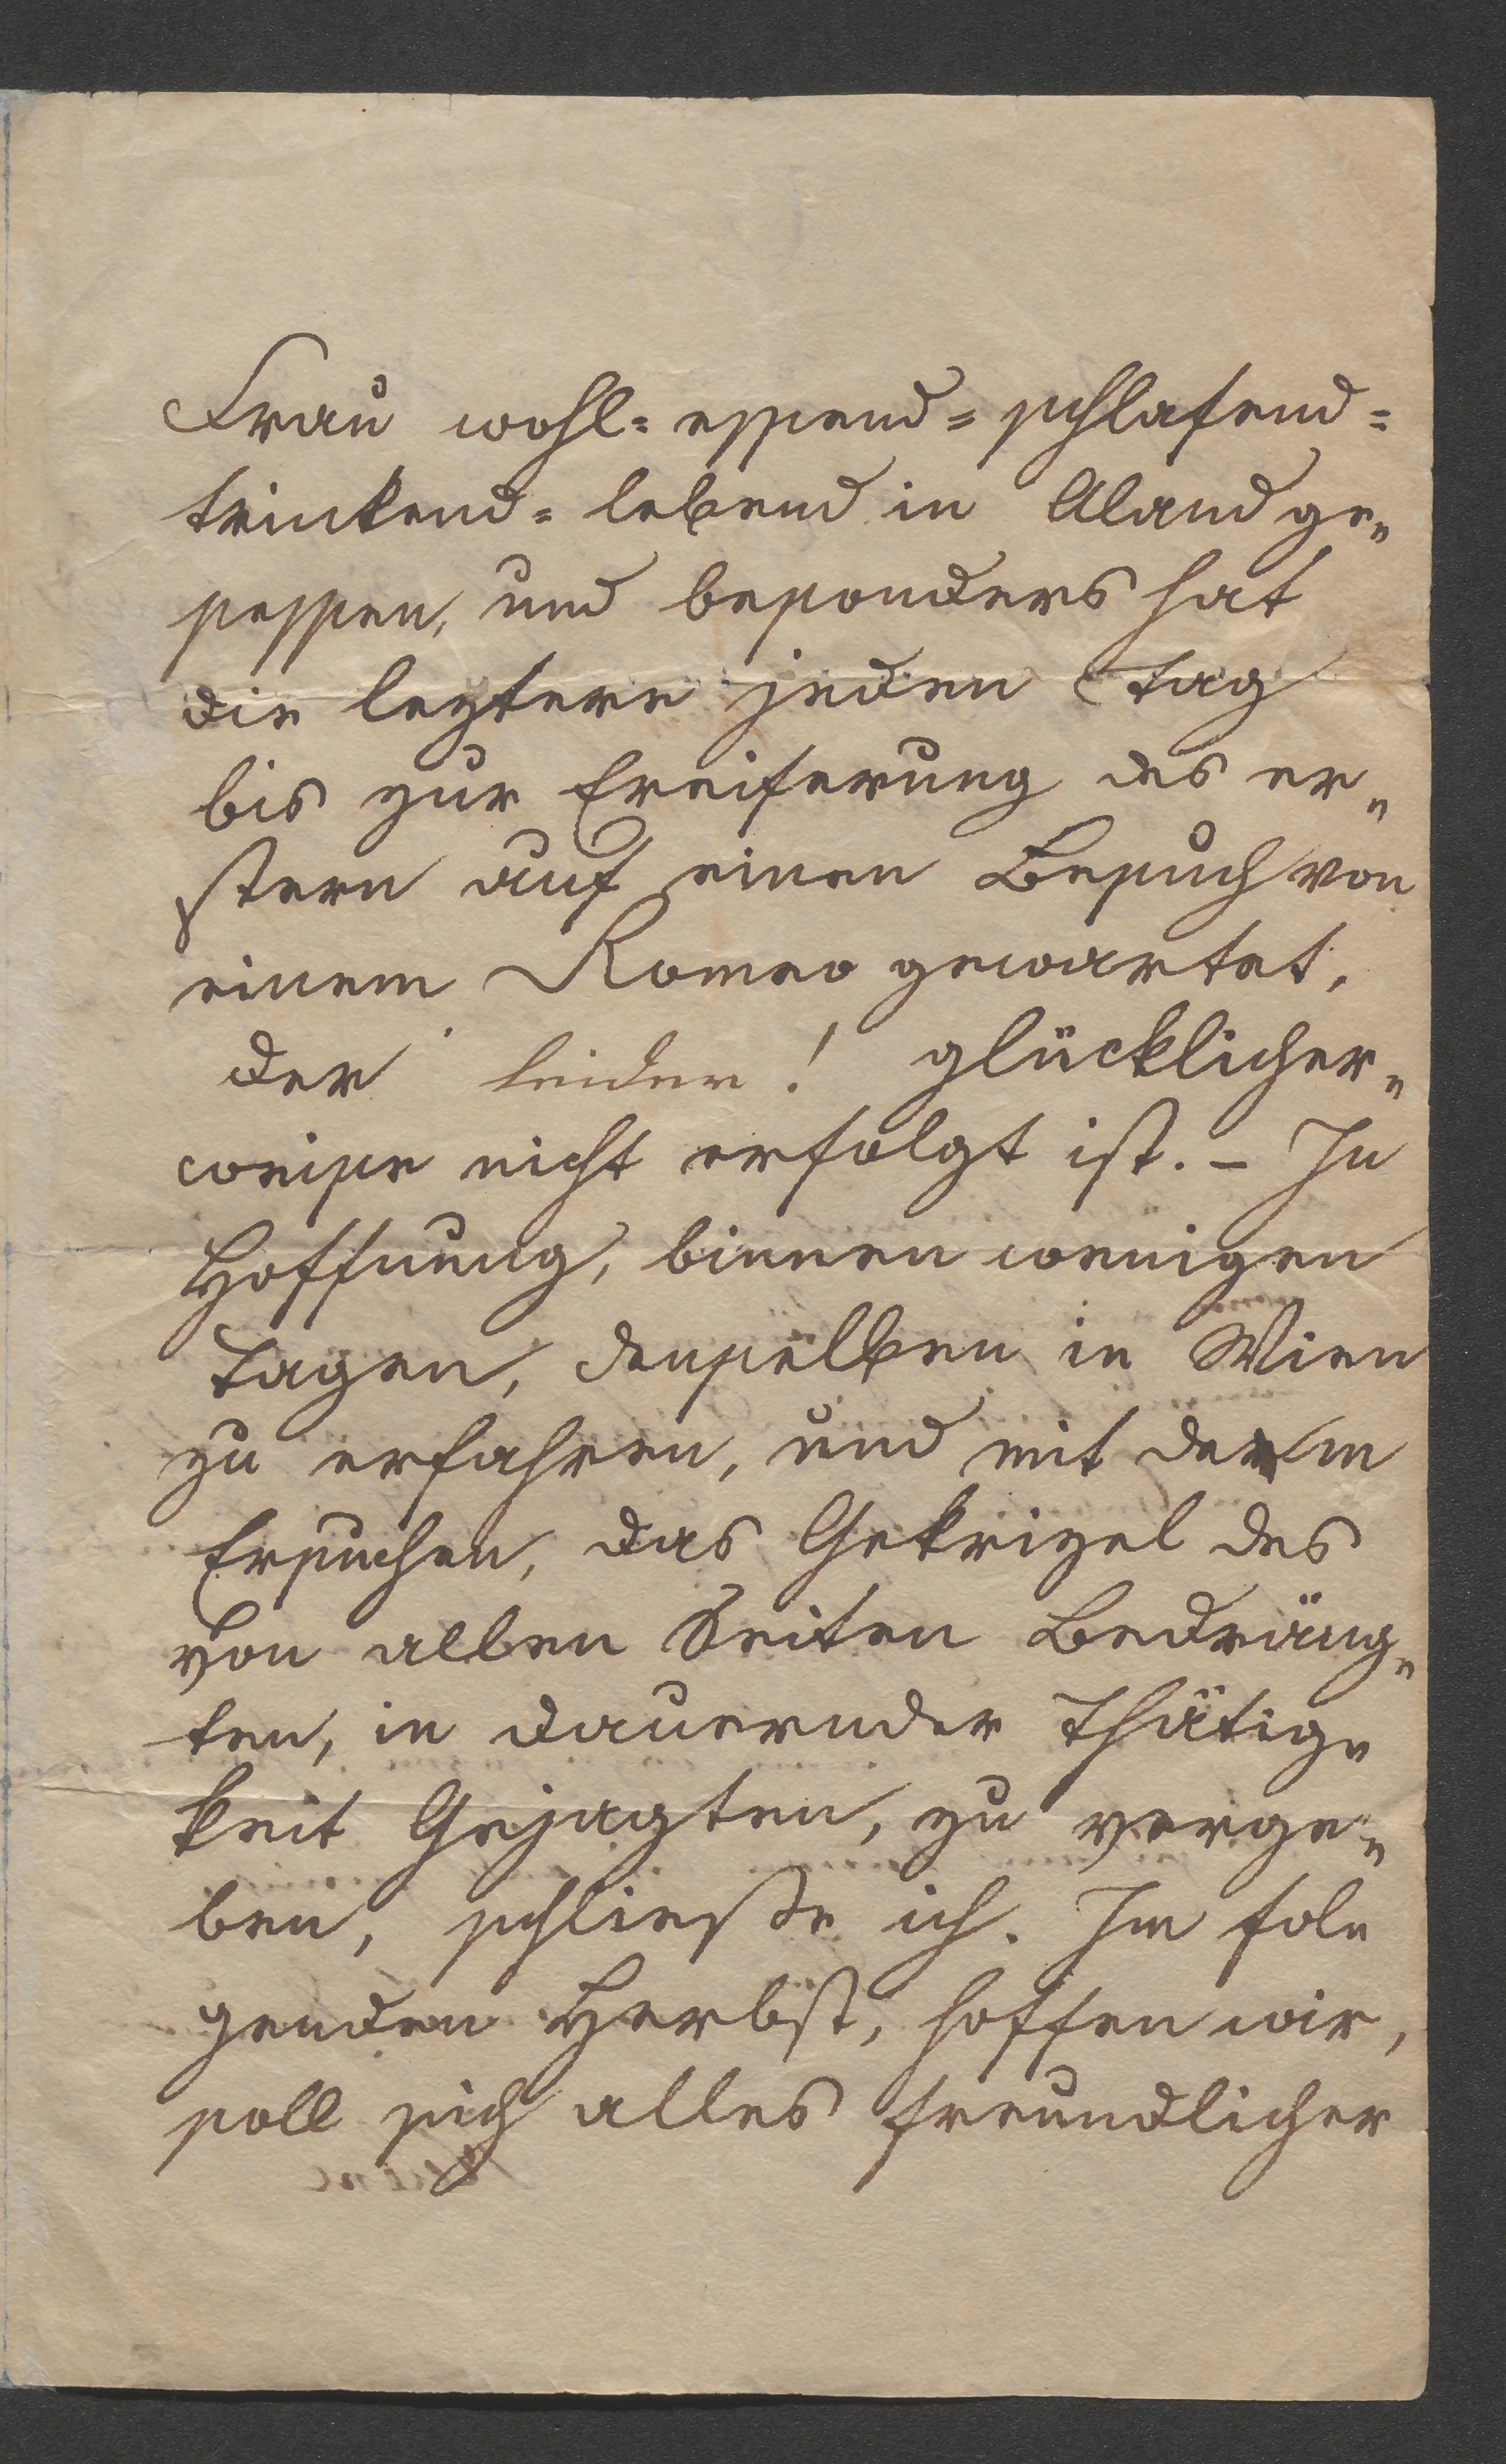 Frau wohl= essend= schlafend=
trinkend= lebend in Aland ge„
sessen, und besonders hat
die leztere jeden Tag
bis zur Ereiferung des er„
stern auf einen Besuch von
einem Romeo gewartet,
der leider! glücklicher„
weise nicht erfolgt ist. – In
Hoffnung, binnen wenigen
Tagen, denselben in Wien
zu erfahren, und mit dem
Ersuchen, das Gekrizel des
von allen Seiten Bedräng„
ten, in dauernder Thätig„
keit Gejagten, zu verge„
ben, schließe ich. Im fol„
genden Herbst, hoffen wir,
soll sich alles freundlicher